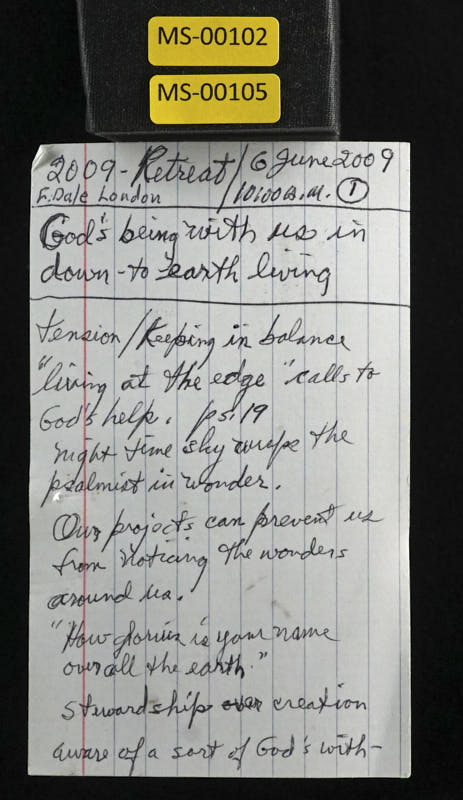 MS-00102
MS-00105
2009 - Retreat / 6 June 2009
F. Dale London / 10:00 a.m. 1
God's being with us in
down-to earth living
tension / Keeping in balance
"living at the edge" calls to
God's help. ps. 19
night time sky wraps the
psalmist in wonder.
Our projects can prevent us
from noticing the wonders
around us.
"How glorius is your name
over all the earth."
stewardship over creation
aware of a sort of God's with-